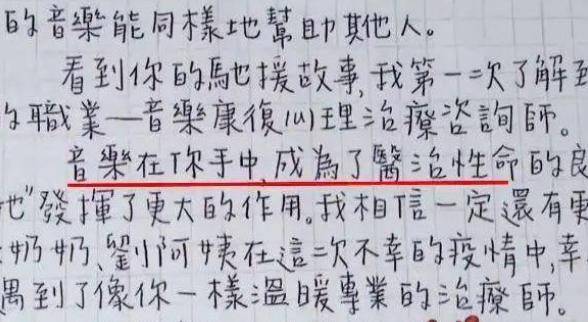 的音樂能同樣地幫助其他人。
看到你的馳援故事,我第一次了解到
職業—音樂康復心理治療咨詢師。
音樂在你手中,成為了醫治性命的良
地"發揮了更大的作用。我相信一定還有更
奶奶、劉小阿姨在這次不幸的疫情中,幸
遇到了像你一樣溫暖專業的治療師。